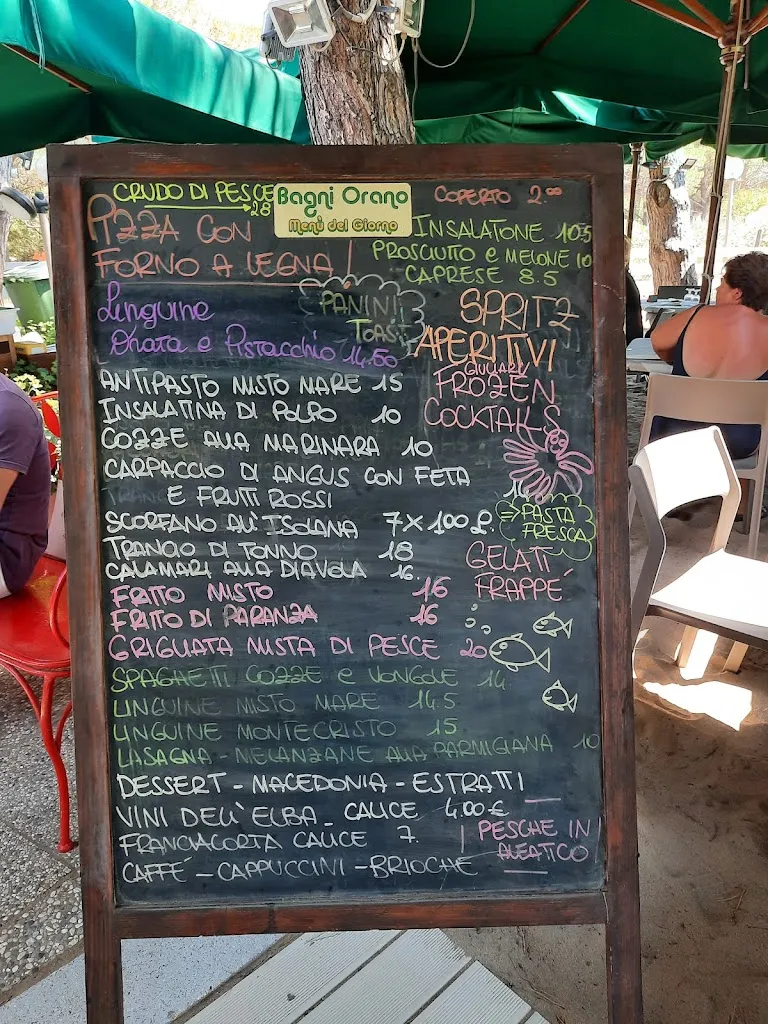 CRUDO DI PESCE
28
Bagni Orano
Menù del Giorno
COPERTO 2.00
PIZZA CON
FORNO A LEGNA !
INSALATONE 10.5
PROSCIUTTO e MELONE 10
CAPRESE 8.5
Linguine
Orata e Pistacchio 14.50
PANINI
TOAST
SPRITZ
APERITIVI
FROZEN
COCKTAILS
ANTIPASTO MISTO MARE 15
INSALATINA DI POLPO 10
COZZE ALLA MARINARA 10
CARPACCIO DI ANGUS CON FETA
E FRUTTI ROSSI 14
SCORFANO ALL'ISOLANA 7 X 100 g.
TRANCIO DI TONNO 18
CALAMARI ALLA DIAVOLA 16.
=> PASTA
FRESCA
GELATI
FRAPPÉ
FRITTO MISTO 16
FRITTO DI PARANZA 16
GRIGLIATA MISTA DI PESCE 20
SPAGHETTI COZZE e VONGOLE 14
LINGUINE MISTO MARE 14.5
LINGUINE MONTECRISTO 15
LASAGNA - MELANZANE ALLA PARMIGIANA 10
DESSERT - MACEDONIA - ESTRATTI
VINI DELL'ELBA - CALICE 4.00 €
FRANCIACORTA CALICE 7.
PESCHE IN
ALEATICO
CAFFÉ - CAPPUCCINI - BRIOCHE